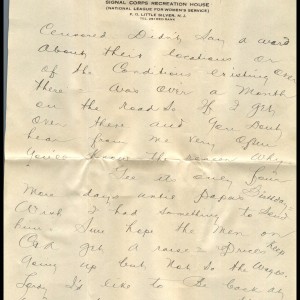 SIGNAL CORPS RECREATION HOUSE
(NATIONAL LEAGUE FOR WOMEN'S SERVICE)
P. O. LITTLE SILVER, N. J.
Censored. Didn't say a word
About their locations or
of the Conditions existing
there was over a Month
on the road so If I get
Over there and You don't
hear from me very Often
You'll Know the reason Why
See it only four
More days until Papas Birthday
Wish I had something to Send
him. Sure hope the Men on
Rd get a raise. Prices keep
Going up but not so the Wages.
I'd like to Be back at